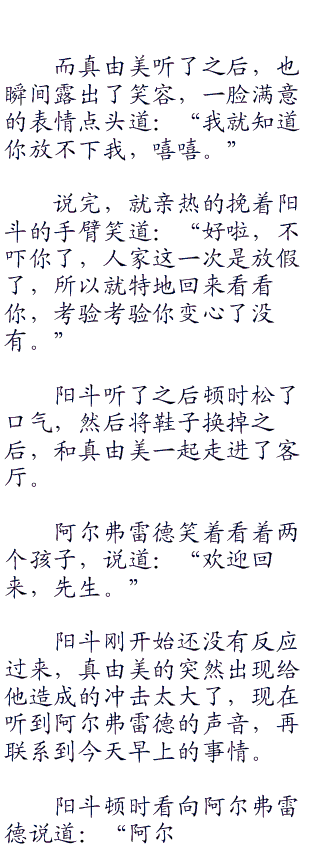 而真由美听了之后，也
瞬间露出了笑容，一脸满意
的表情点头道：“我就知道
你放不下我，嘻嘻。”
说完，就亲热的挽着阳
斗的手臂笑道：“好啦，不
吓你了，人家这一次是放假
了，所以就特地回来看看
你，考验考验你变心了没
有。”
阳斗听了之后顿时松了
口气，然后将鞋子换掉之
后，和真由美一起走进了客
厅。
阿尔弗雷德笑着看着两
个孩子，说道：“欢迎回
来，先生。”
阳斗刚开始还没有反应
过来，真由美的突然出现给
他造成的冲击太大了，现在
听到阿尔弗雷德的声音，再
联系到今天早上的事情。
阳斗顿时看向阿尔弗雷
德说道：“阿尔